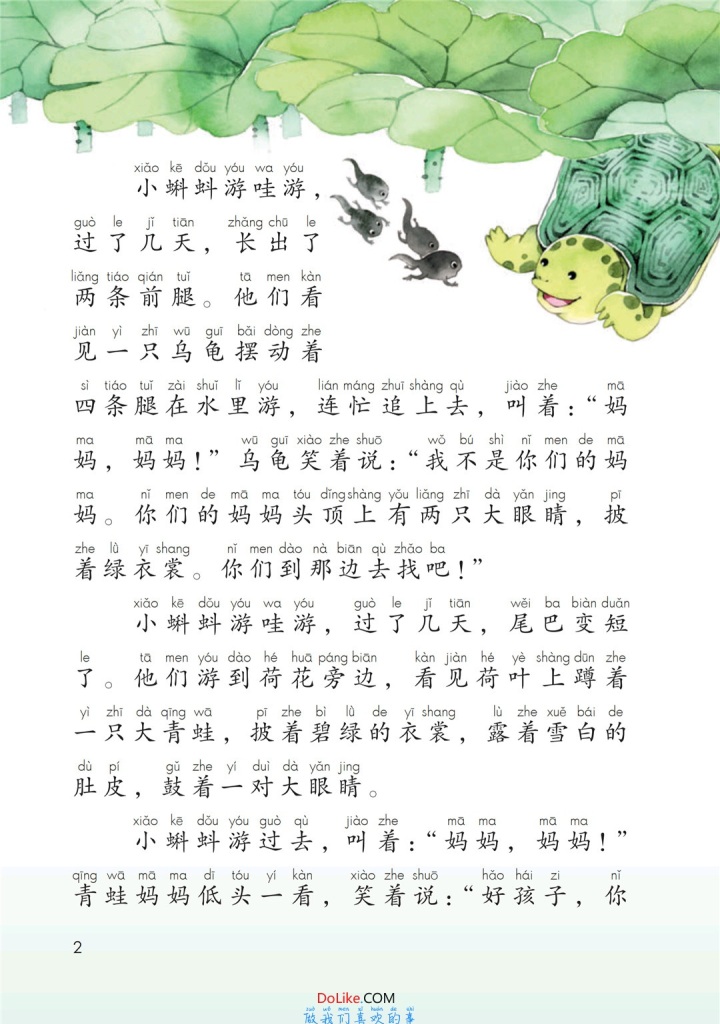 xiǎo kē dǒu yóu wa yóu
小蝌蚪游哇游，
guò le jǐ tiān zhǎng chū le
过了几天，长出了
liǎng tiáo qián tuǐ tā men kàn
两条前腿。他们看
jiàn yì zhī wū guī bǎi dòng zhe
见一只乌龟摆动着
sì tiáo tuǐ zài shuǐ lǐ yóu lián máng zhuī shàng qù jiào zhe mā
四条腿在水里游，连忙追上去，叫着：“妈
ma mā ma wū guī xiào zhe shuō wǒ bú shì nǐ men de mā
妈，妈妈！”乌龟笑着说：“我不是你们的妈
ma nǐ men de mā ma tóu dǐng shàng yǒu liǎng zhī dà yǎn jing pī
妈。你们的妈妈头顶上有两只大眼睛，披
zhe lǜ yī shang nǐ men dào nà biān qù zhǎo ba
着绿衣裳。你们到那边去找吧！”
xiǎo kē dǒu yóu wa yóu guò le jǐ tiān wěi ba biàn duǎn
小蝌蚪游哇游，过了几天，尾巴变短
le tā men yóu dào hé huā páng biān kàn jiàn hé yè shàng dūn zhe
了。他们游到荷花旁边，看见荷叶上蹲着
yì zhī dà qīng wā pī zhe bì lǜ de yī shang lù zhe xuě bái de
一只大青蛙，披着碧绿的衣裳，露着雪白的
dù pí gǔ zhe yí duì dà yǎn jing
肚皮，鼓着一对大眼睛。
xiǎo kē dǒu yóu guò qù jiào zhe mā ma mā ma
小蝌蚪游过去，叫着：“妈妈，妈妈！”
qīng wā mā ma dī tóu yí kàn xiào zhe shuō hǎo hái zi nǐ
青蛙妈妈低头一看，笑着说：“好孩子，你
2
DoLike.COM
zuò wǒ men xǐ huān de shì
做我们喜欢的事